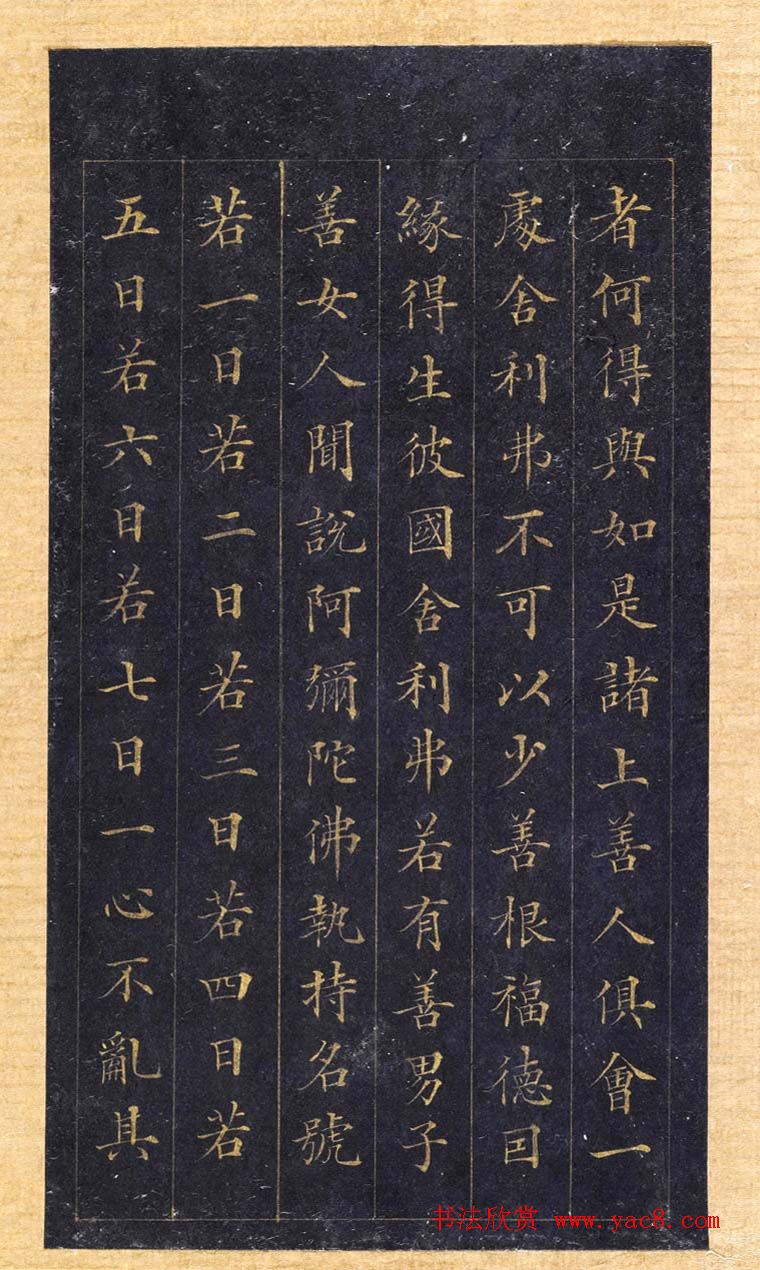 者何得與如是諸上善人俱會一
處舍利弗不可以少善根福德因
緣得生彼國舍利弗若有善男子
善女人聞說阿彌陀佛執持名號
若一日若二日若三日若四日若
五日若六日若七日一心不亂其
书法欣赏 www.yac8.com